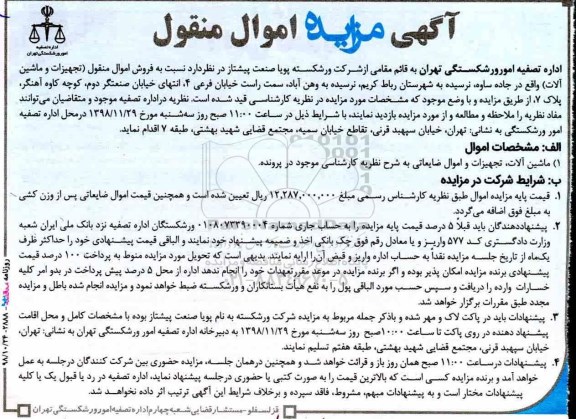 آگهی مزایده اموال منقول
اداره تصفیه
امور ورشکستگی تهران
اداره تصفیه امورورشکستگی تهران به قائم مقامی ازشرکت ورشکسته پویا صنعت پیشتاز در نظردارد نسبت به فروش اموال منقول (تجهیزات و ماشین
آلات) واقع در جاده ساوه، نرسیده به شهرستان رباط کریم، نرسیده به وهن آباد، سمت راست خیابان فرعی ۴، انتهای خیابان صنعتگر دوم، کوچه کاوه آهنگر،
پلاک ۷، از طریق مزایده و با وضع موجود که مشخصات مورد مزایده در نظریه کارشناسی قید شده است. نظریه دراداره تصفیه موجود و متقاضیان می‌توانند
مفاد نظریه را ملاحظه و مطالعه و از مورد مزایده بازدید نمایند، با شرایط ذیل در ساعت ۱۱:۰۰ صبح روز سه‌شنبه مورخ ۱۳۹۸/۱۱/۲۹ درمحل اداره تصفیه
امور ورشکستگی به نشانی: تهران، خیابان سپهبد قرنی، تقاطع خیابان سمیه، مجتمع قضایی شهید بهشتی، طبقه ۷ اقدام نماید.
الف: مشخصات اموال
۱) ماشین آلات، تجهیزات و اموال ضایعاتی به شرح نظریه کارشناسی موجود در پرونده.
ب: شرایط شرکت در مزایده
۱. قیمت پایه مزایده اموال طبق نظریه کارشناس رسمی مبلغ ۱۲,۲۸۷,۰۰۰,۰۰۰ ریال تعیین شده است و همچنین قیمت اموال ضایعاتی پس از وزن کشی
به مبلغ فوق اضافه می‌گردد.
۲. پیشنهاددهندگان باید قبلاً ۵ درصد قیمت پایه مزایده را به حساب جاری شماره ۰۱۰۸۰۷۳۳۹۰۰۰۴ ورشکستگان اداره تصفیه نزد بانک ملی ایران شعبه
وزارت دادگستری کد ۵۷۷ واریز و یا معادل رقم فوق چک بانکی اخذ و ضمیمه پیشنهاد خود نمایند و الباقی قیمت پیشنهادی خود را حداکثر ظرف
یک‌ماه از تاریخ جلسه مزایده نقداً به حساب اداره واریز و قبض آن را ارایه نمایند. بدیهی است که تحویل مورد مزایده منوط به پرداخت ۱۰۰ درصد قیمت
پیشنهادی برنده مزایده امکان پذیر بوده و اگر برنده مزایده در موعد مقرر تعهدات خود را انجام ندهد اداره از محل ۵ درصد پیش پرداخت در بدو امر کلیه
خسارات وارده را دریافت و سپس حسب مورد الباقی پول را به نفع هیات بستانکاران ورشکسته ضبط خواهد نمود و مزایده انجام شده باطل و مزایده
مجدد طبق مقررات برگزار خواهد شد.
۳. پیشنهادات باید در پاکت لاک و مهر شده و باذکر جمله مربوط به مزایده شرکت ورشکسته به نام پویا صنعت پیشتاز بوده با مشخصات کامل و محل اقامت
پیشنهاد دهنده در روی پاکت تا ساعت ۱۱:۰۰صبح روز سه‌شنبه مورخ ۱۳۹۸/۱۱/۲۹ به دبیرخانه اداره تصفیه امور ورشکستگی تهران به نشانی: تهران،
خیابان سپهبد قرنی، مجتمع قضایی شهید بهشتی، طبقه هفتم تسلیم نمایند.
۴. پیشنهادات درساعت ۱۱:۰۰ صبح همان روز باز و قرائت خواهد شد و همچنین درهمان جلسه، مزایده حضوری بین شرکت کنندگان درجلسه به عمل
خواهد آمد و برنده مزایده کسی است که بالاترین قیمت را به صورت کتبی یا حضوری درجلسه پیشنهاد نماید، اداره تصفیه در رد یا قبول یک یا کلیه
پیشنهادات مختار است و به پیشنهادات مبهم، مشروط، فاقد سپرده و برخلاف شرایط این آگهی ترتیب اثر داده نخواهد شد.
قزلسفلو-مستشار قضایی شعبه چهارم اداره تصفیه امورورشکستگی تهران